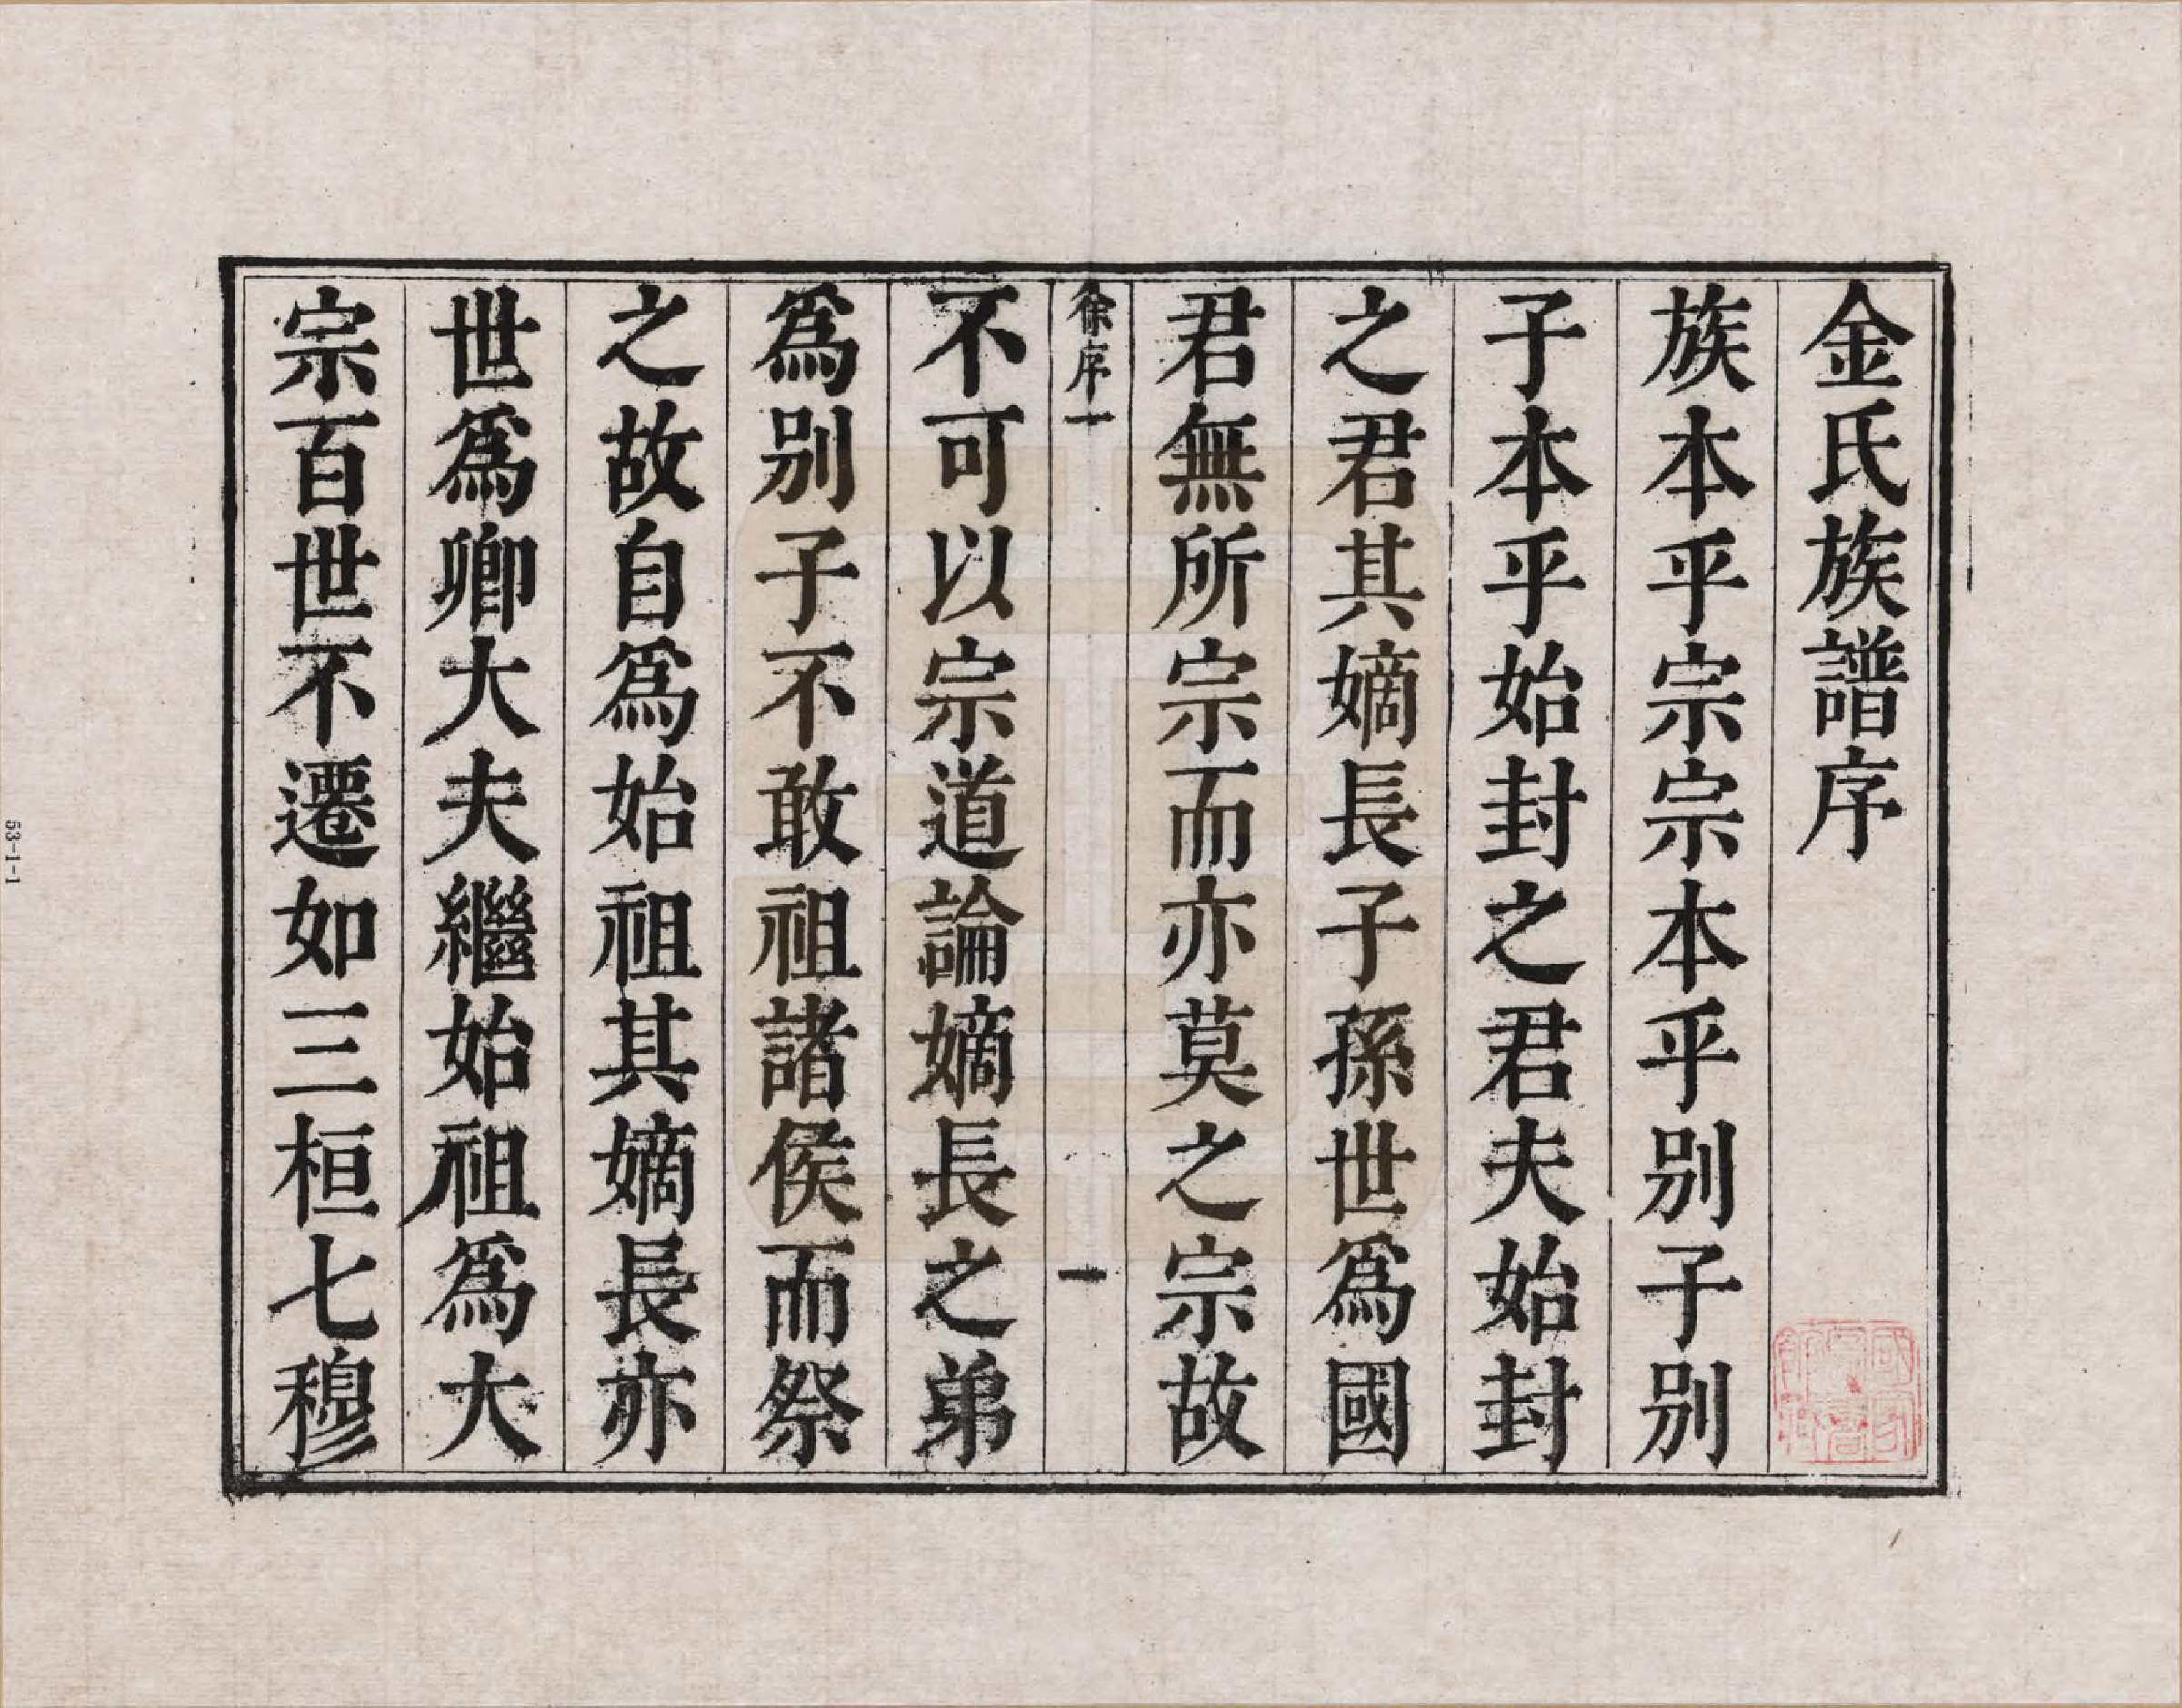 金氏族譜序
族本乎宗宗本乎别子别
子本乎始封之君夫始封
之君其嫡長子孫世爲國
君無所宗而亦莫之宗故
徐序一
一
不可以宗道論嫡長之弟
爲别子不敢祖諸侯而祭
之故自爲始祖其嫡長亦
世爲卿大夫繼始祖爲大
宗百世不遷如三桓七穆
53-1-1